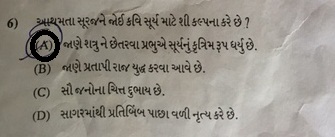 6) આથમતા સૂરજને જોઈ કવિ સૂર્ય માટે શી કલ્પના કરે છે ?
(A) જાણે શત્રુ ને છેતરવા પ્રભુએ સૂર્યનું કૃત્રિમ રૂપ ધર્યું છે.
(B) જાણે પ્રતાપી રાજા યુદ્ધ કરવા આવે છે.
(C) સૌ જનોના ચિત્ત દુભાય છે.
(D) સાગરમાંથી પ્રતિબિંબ પાછા વળી નૃત્ય કરે છે.